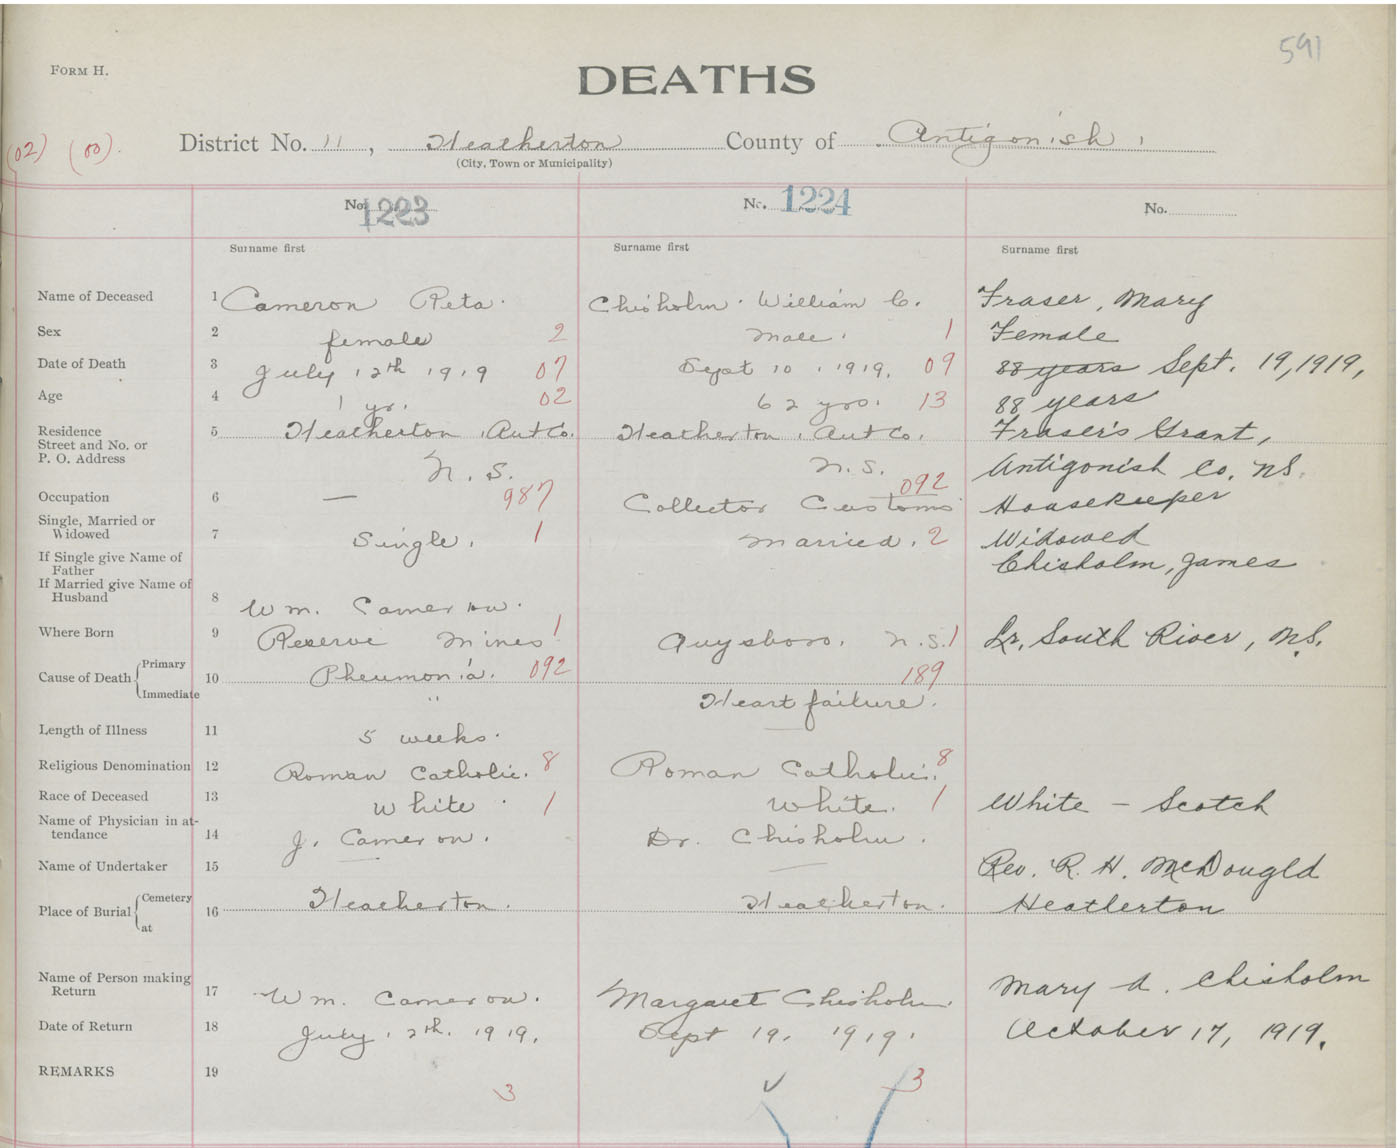 591
FORM H.
DEATHS
(02) (00).
District No. 11, Heatherton County of Antigonish,
(City, Town or Municipality)
No. 1223 No. 1224 No.
Surname first Surname first Surname first
Name of Deceased 1 Cameron Reta. Chisholm. William C. Fraser, Mary
Sex 2 female 2 Male. 1 Female
Date of Death 3 July 12th 1919 07 Sept 10, 1919. 09 88 years Sept. 19, 1919,
Age 4 1 yr. 02 62 yrs. 13 88 years
Residence 5 Heatherton, Ant Co. Heatherton, Ant Co. Fraser's Grant,
Street and No. or
P. O. Address N. S. N. S. Antigonish Co, NS.
Occupation 6 — 987 Collector Customs 092 Housekeeper
Single, Married or
Widowed 7 Single. 1 Married. 2 Widowed
If Single give Name of
Father Chisholm, James
If Married give Name of
Husband 8 Wm. Cameron.
Where Born 9 Reserve Mines 1 Guysboro. N.S. 1 Lr. South River, N.S.
Cause of Death Primary 10 Pneumonia. 092 189
Immediate " Heart failure.
Length of Illness 11 5 weeks. —
Religious Denomination 12 Roman Catholic. 8 Roman Catholic. 8
Race of Deceased 13 White. 1 White. 1 White – Scotch
Name of Physician in at-
tendance 14 J. Cameron. Dr. Chisholm.
Name of Undertaker 15 — — Rev. R. H. McDougld
Place of Burial Cemetery 16 Heatherton. Heatherton. Heatlerton
at
Name of Person making
Return 17 Wm. Cameron. Margaret Chisholm. Mary A. Chisholm
Date of Return 18 July 12th. 1919. Sept 19. 1919. October 17, 1919.
REMARKS 19
3 3